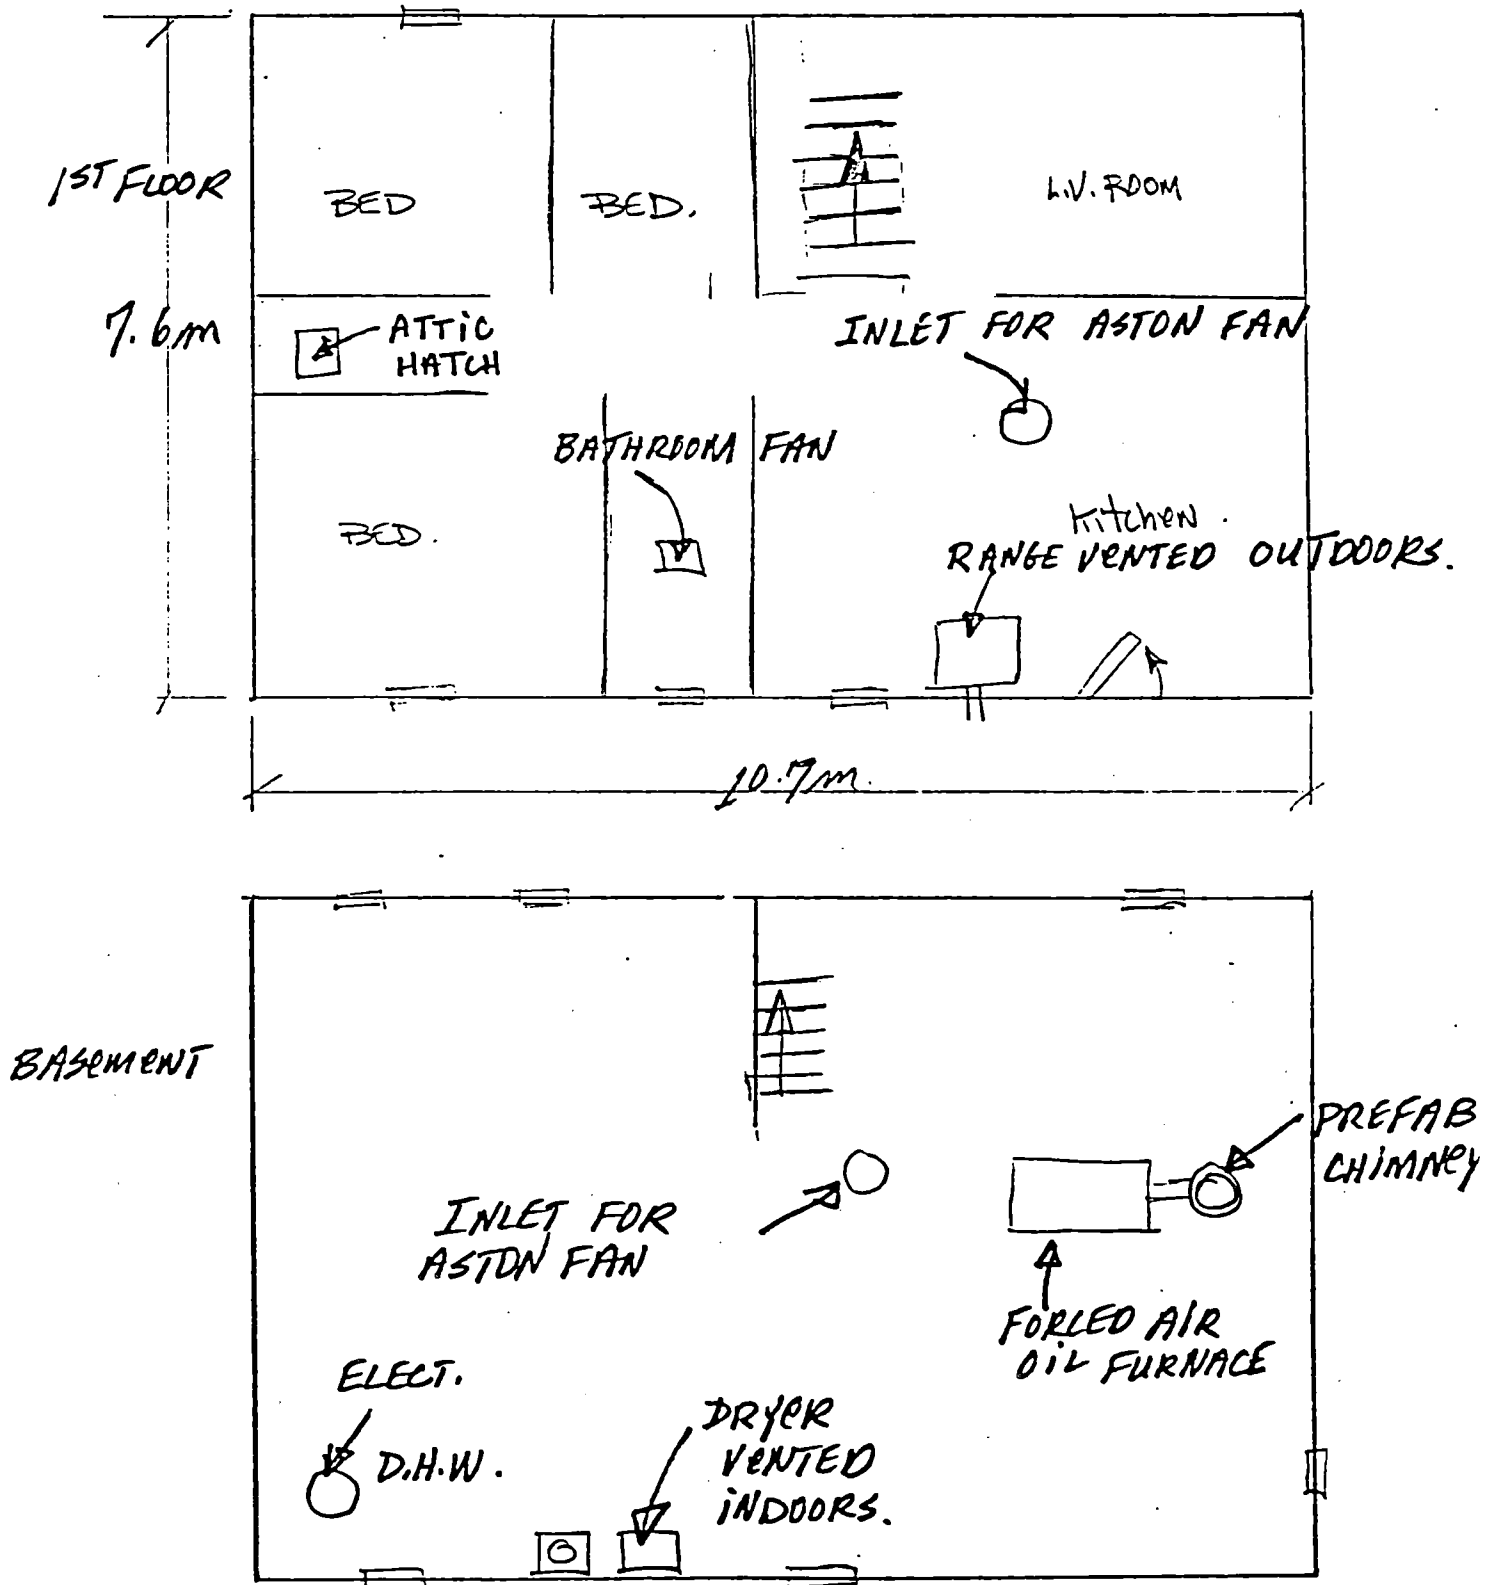 1ST FLOOR
BED
BED.
LIV. ROOM
7.6m
ATTIC
HATCH
INLET FOR ASTON FAN
BATHROOM FAN
BED.
Kitchen.
RANGE VENTED OUTDOORS.
10.7m.
BASEMENT
PREFAB
CHIMNEY
INLET FOR
ASTON FAN
FORCED AIR
OIL FURNACE
ELECT.
D.H.W.
DRYER
VENTED
INDOORS.